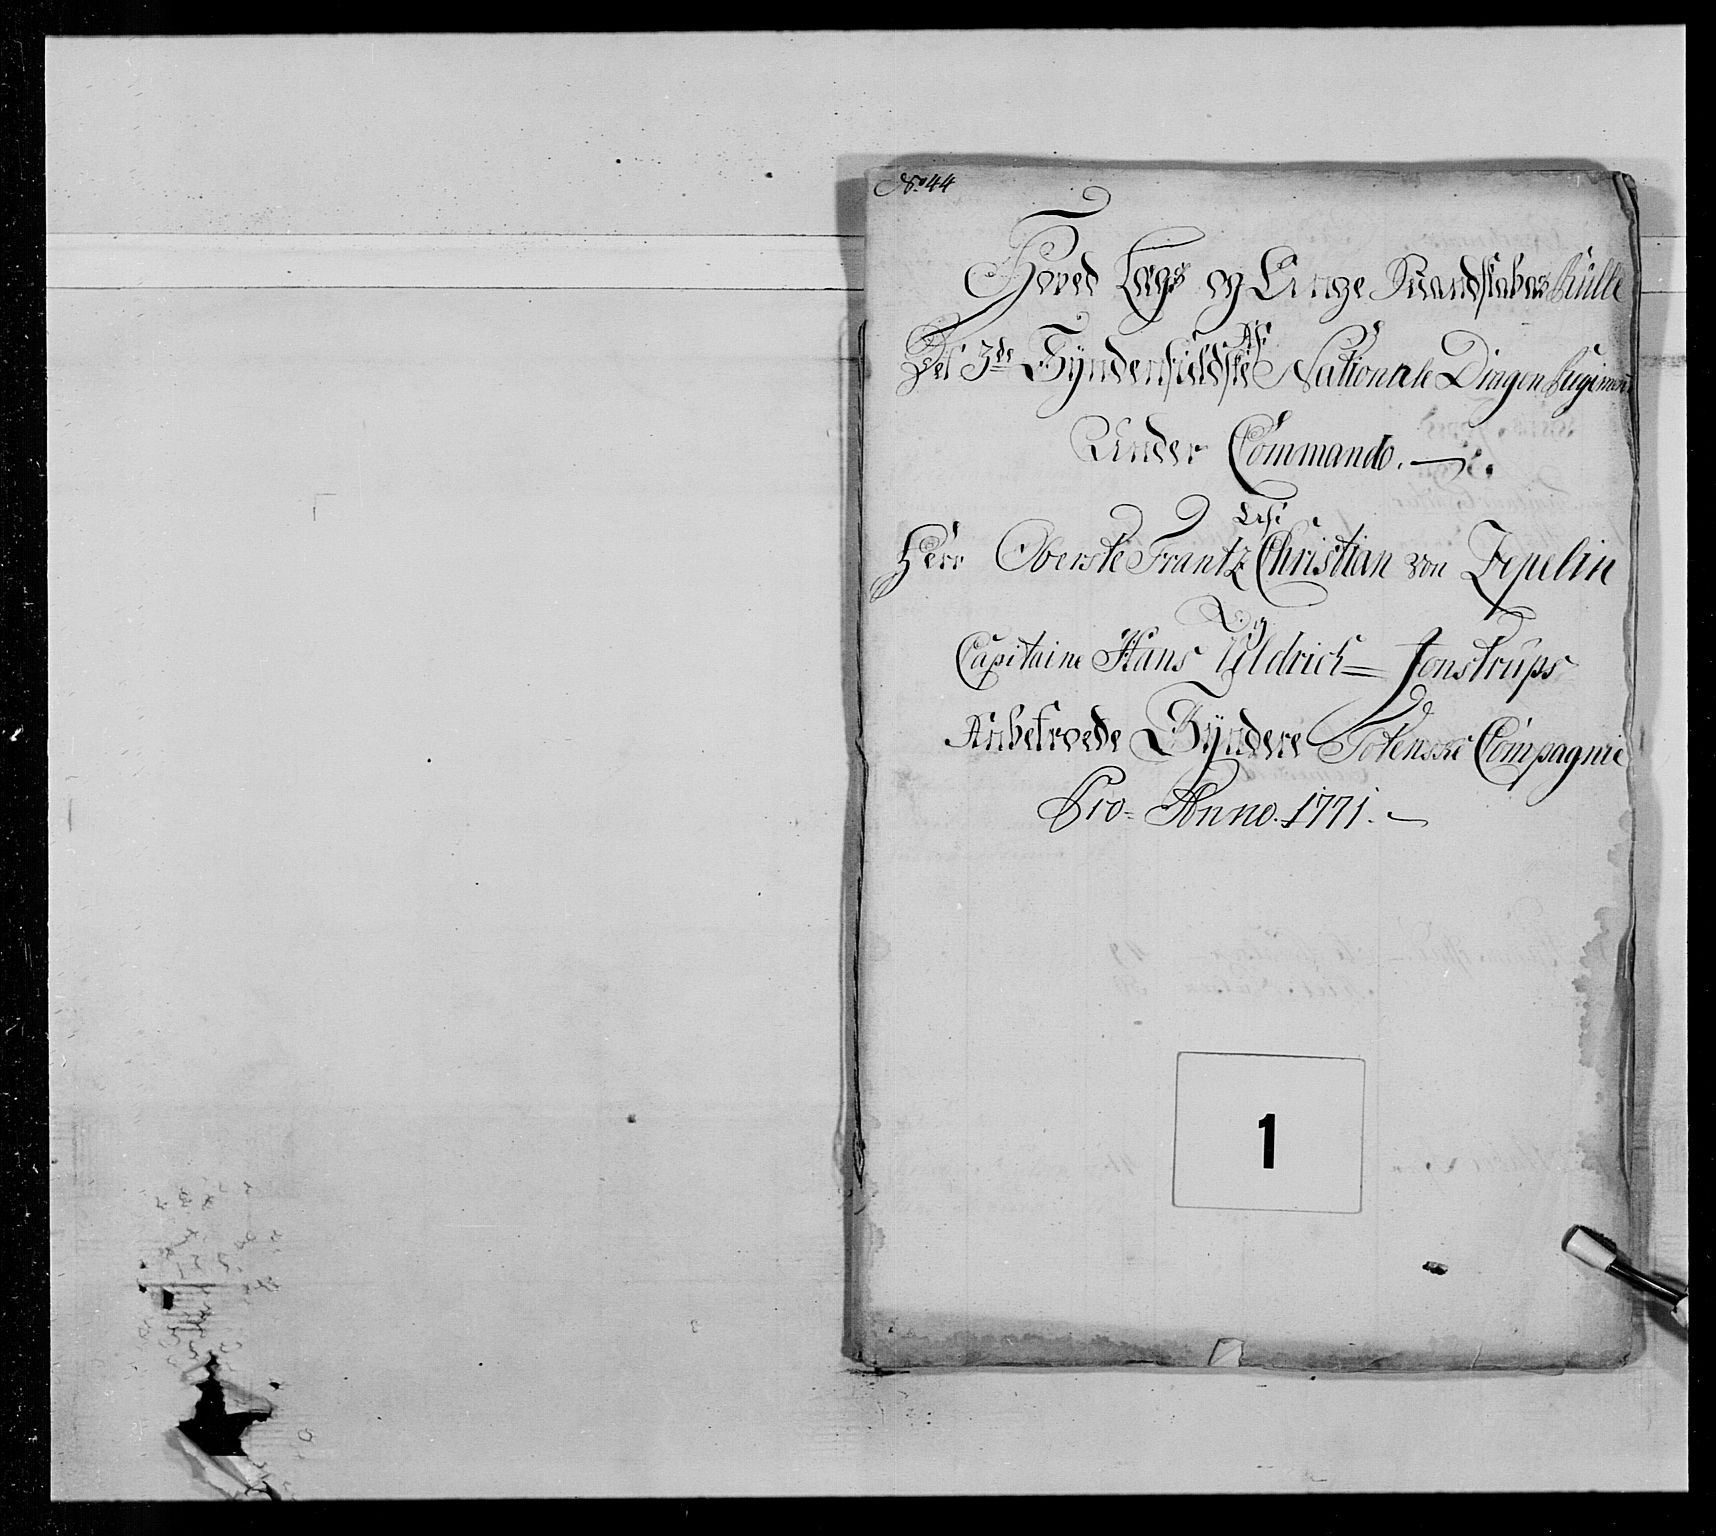 No. 44
Hoved Lægs og Unge Mandskabes Rulle
Af
Det 3de Syndenfieldske Nationale Dragon Regiment
Under Commando.
Af
Herr Oberste Frantz Christian von Zepelin
Og
Capitaine Hans Uldrich Jonstrups
Anbetroede Syndere Totenske Compagnie
Pro Anno. 1771.
1